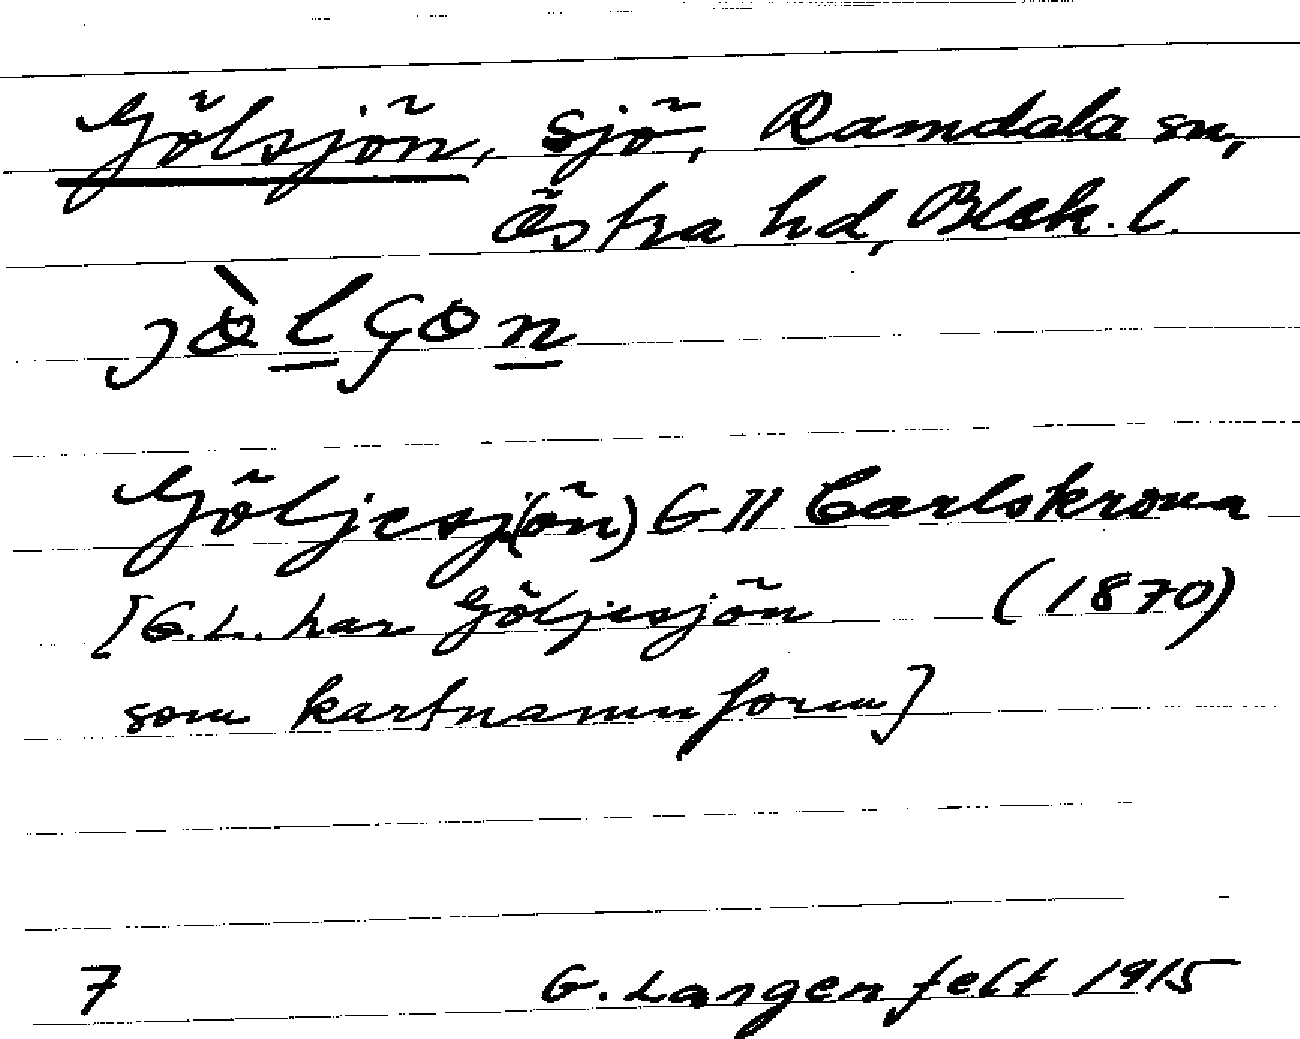 Gölsjön, sjö, Ramdala sn,
Östra hd, Blek. l.
jòlʃon
Göljesj(ön) GII Carlskrona
[G.L. har Göljesjön (1870)
som kartnamnform]
7 G. Langenfelt 1915